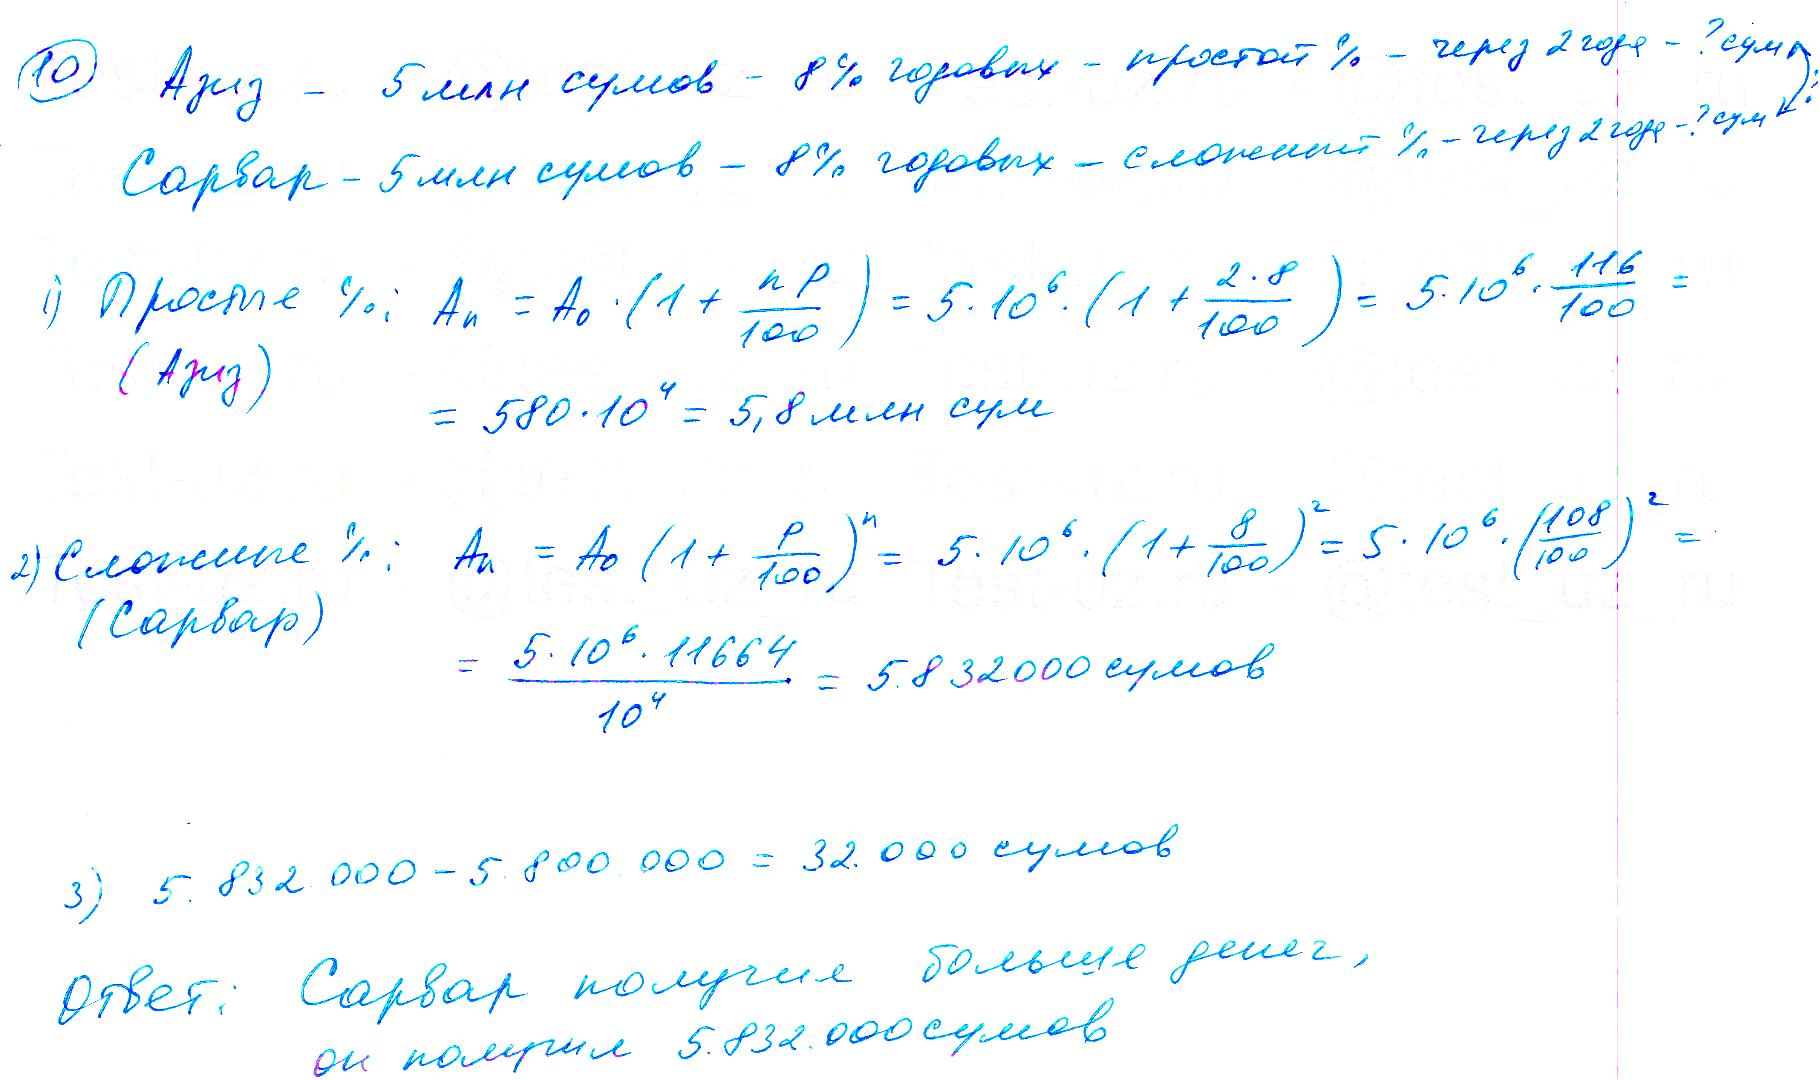 10 Азиз – 5 млн сумов – 8% годовых – простой % – через 2 года – ? сум
Сарвар – 5 млн сумов – 8% годовых – сложный % – через 2 года – ? сум
?
1) Простые %: Aₙ = A₀ · (1 + nP/100) = 5·10⁶ · (1 + 2·8/100) = 5·10⁶ · 116/100 =
(Азиз)
= 580·10⁴ = 5,8 млн сум
2) Сложные %: Aₙ = A₀ (1 + P/100)ⁿ = 5·10⁶ · (1 + 8/100)² = 5·10⁶ · (108/100)² =
(Сарвар)
= 5·10⁶·11664/10⁴ = 5.832000 сумов
3) 5.832.000 – 5.800 000 = 32.000 сумов
Ответ: Сарвар получил больше денег,
он получил 5.832.000 сумов